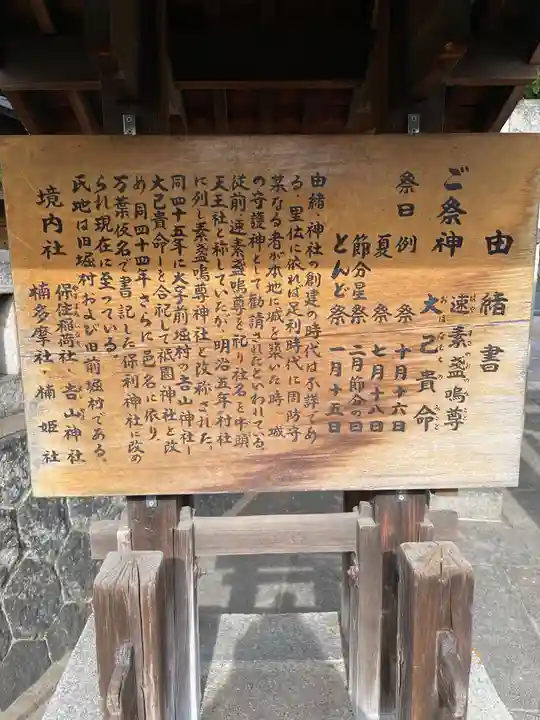 由緒書
ご祭神 速素盞嗚尊
大己貴命
祭日 例祭 十月十六日
夏祭 七月十八日
節分星祭 二月節分の日
とんど祭 一月十五日
由緒・神社の創建の時代は不詳であ
る・里伝に依れば足利時代に周防守
某なる者が本地に城を築いた時、城
の守護神として勧請されたといわれている。
従前・速素盞嗚尊を祀り社名を牛頭
天王社と称していたが、明治五年村社
に列し素盞嗚尊神社と改称された。
同四十五年に大字前堀村の吉山神社―
大己貴命―を合祀して祇園神社と改
め、同四十四年、さらに邑名に依り、
万葉仮名で書記した保利神社に改め
られ現在に至っている。
氏地は旧堀村および旧前堀村である。
境内社 保住稲荷社、吉山神社
楠多摩社・楠姫社